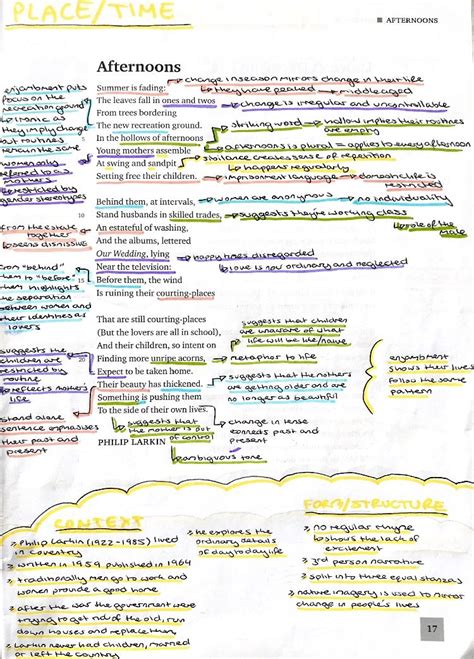 PLACE/TIME
AFTERNOONS
Afternoons
Summer is fading:
The leaves fall in ones and twos
From trees bordering
The new recreation ground.
In the hollows of afternoons
Young mothers assemble
At swing and sandpit
Setting free their children.
Behind them, at intervals,
10 Stand husbands in skilled trades,
An estateful of washing,
And the albums, lettered
Our Wedding, lying
Near the television:
15 Before them, the wind
Is ruining their courting-places
That are still courting-places
(But the lovers are all in school),
And their children, so intent on
20 Finding more unripe acorns,
Expect to be taken home.
Their beauty has thickened.
Something is pushing them
To the side of their own lives.
PHILIP LARKIN
change in season mirrors change in their life
they have peaked
middle aged
change is irregular and uncontrollable
striking word
hollow implies their routines
are empty
afternoons is plural = applies to every afternoon
sibilance creates sense of repetition
happens regularly
imprisonment language
domestic life is
restricted
women are anonymous
no individuality
suggests they're working class
role of the
male
happy times disregarded
love is now ordinary and neglected
suggests that children
are unaware of what
life will be like/naive
metaphor to life
suggests that the mothers
are getting older and are
no longer as beautiful
enjambment
shows their lives
follow the same
pattern
suggests that
the mother is out
of control
change in tense
connects past and
present
ambiguous tone
enjambment puts
focus on the
recreation ground
ironic as
they imply change
but routines
remain the same
women only
referred to as
mothers
restricted by
gender stereotypes
together
seems dismissive
from "behind"
them to "before"
them highlights
the separation
between women and
their identities as
lovers
suggests the
children are
restricted by
routine
reflects mother's
life
stand alone
sentence emphasises
their past and
present
CONTEXT
Philip Larkin (1922-1985) lived
in Coventry
written in 1959 published in 1964
traditionally men go to work and
women provide a good home
after the war the government were
trying to get rid of the old, run
down houses and replace them
Larkin never had children, married
or left the country
he explores the
ordinary details
of day to day life
FORM/STRUCTURE
no regular rhyme
shows the lack of
excitement
3rd person narrative
split into three equal stanzas
nature imagery is used to mirror
change in people's lives
17